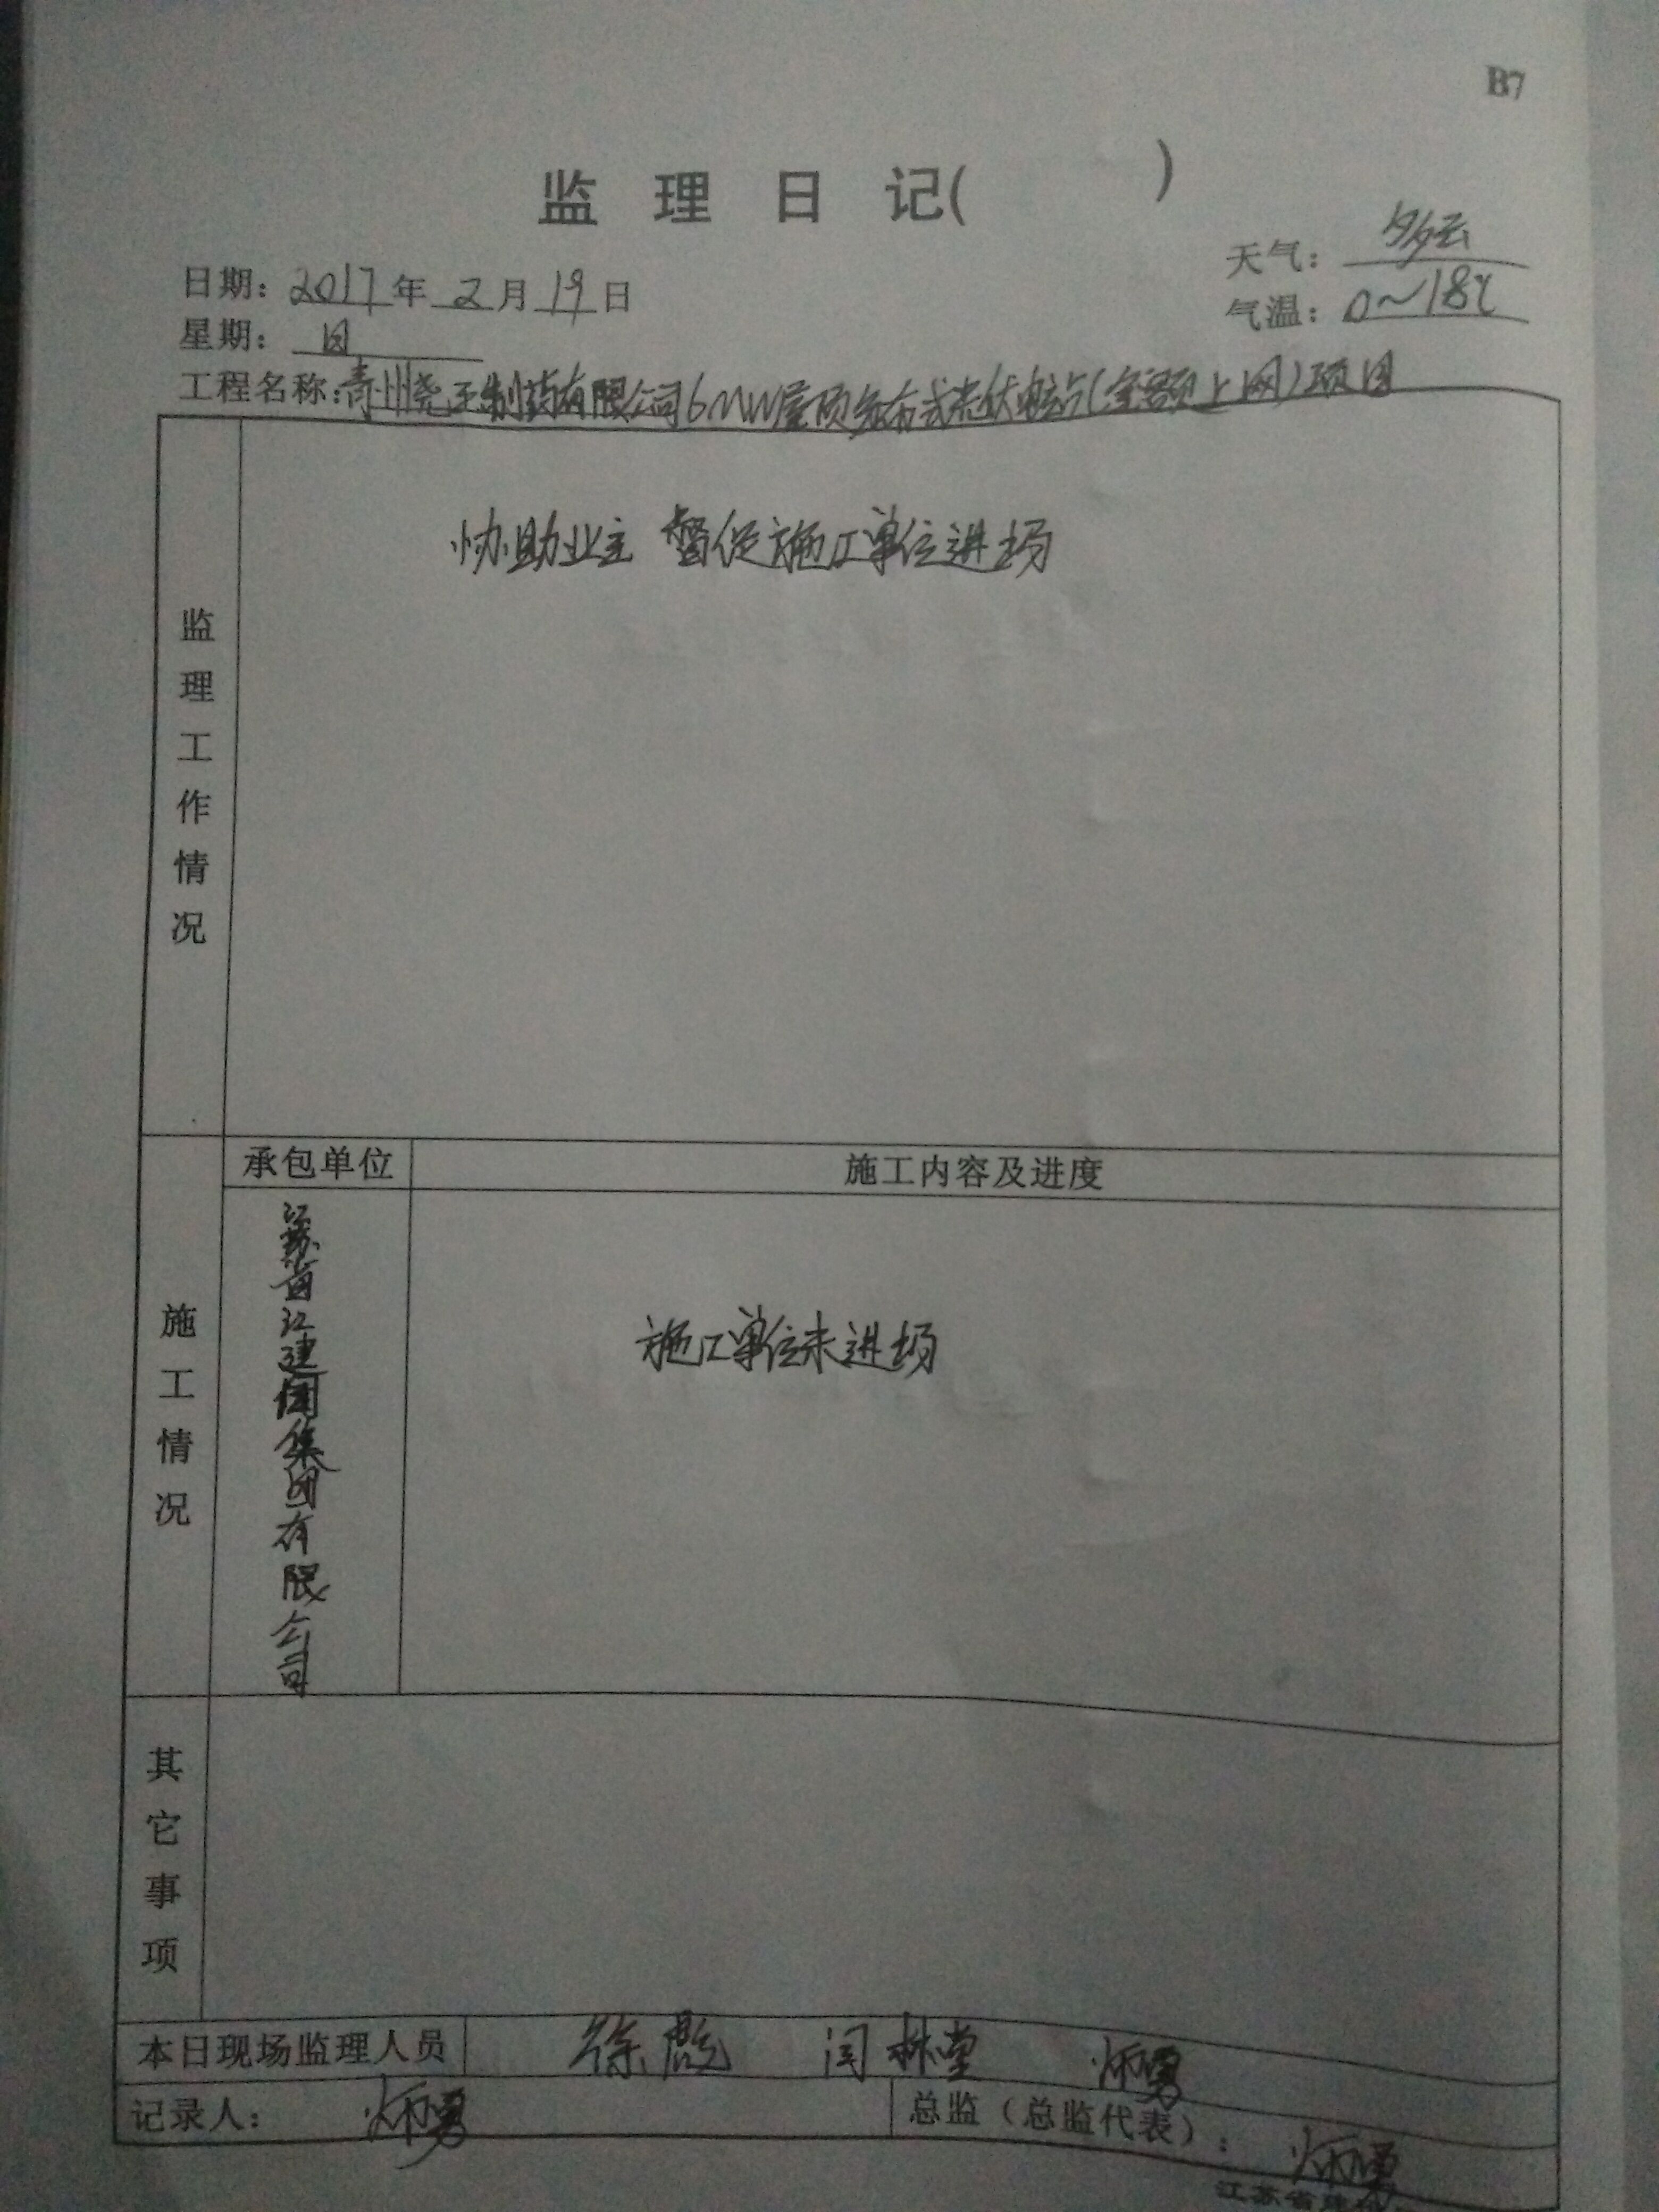 B7
监 理 日 记( )
天气：多云
日期：2017年2月19日
气温：0~18℃
星期：日
工程名称：青州尧王制药有限公司6MW屋顶分布式光伏电站(全额上网)项目
监理工作情况
协助业主 督促施工单位进场
施工情况
承包单位
施工内容及进度
江苏省江建集团有限公司
施工单位未进场
其它事项
本日现场监理人员 徐 闫林堂 炳勇
记录人： 炳勇 总监（总监代表）： 炳勇
江苏省